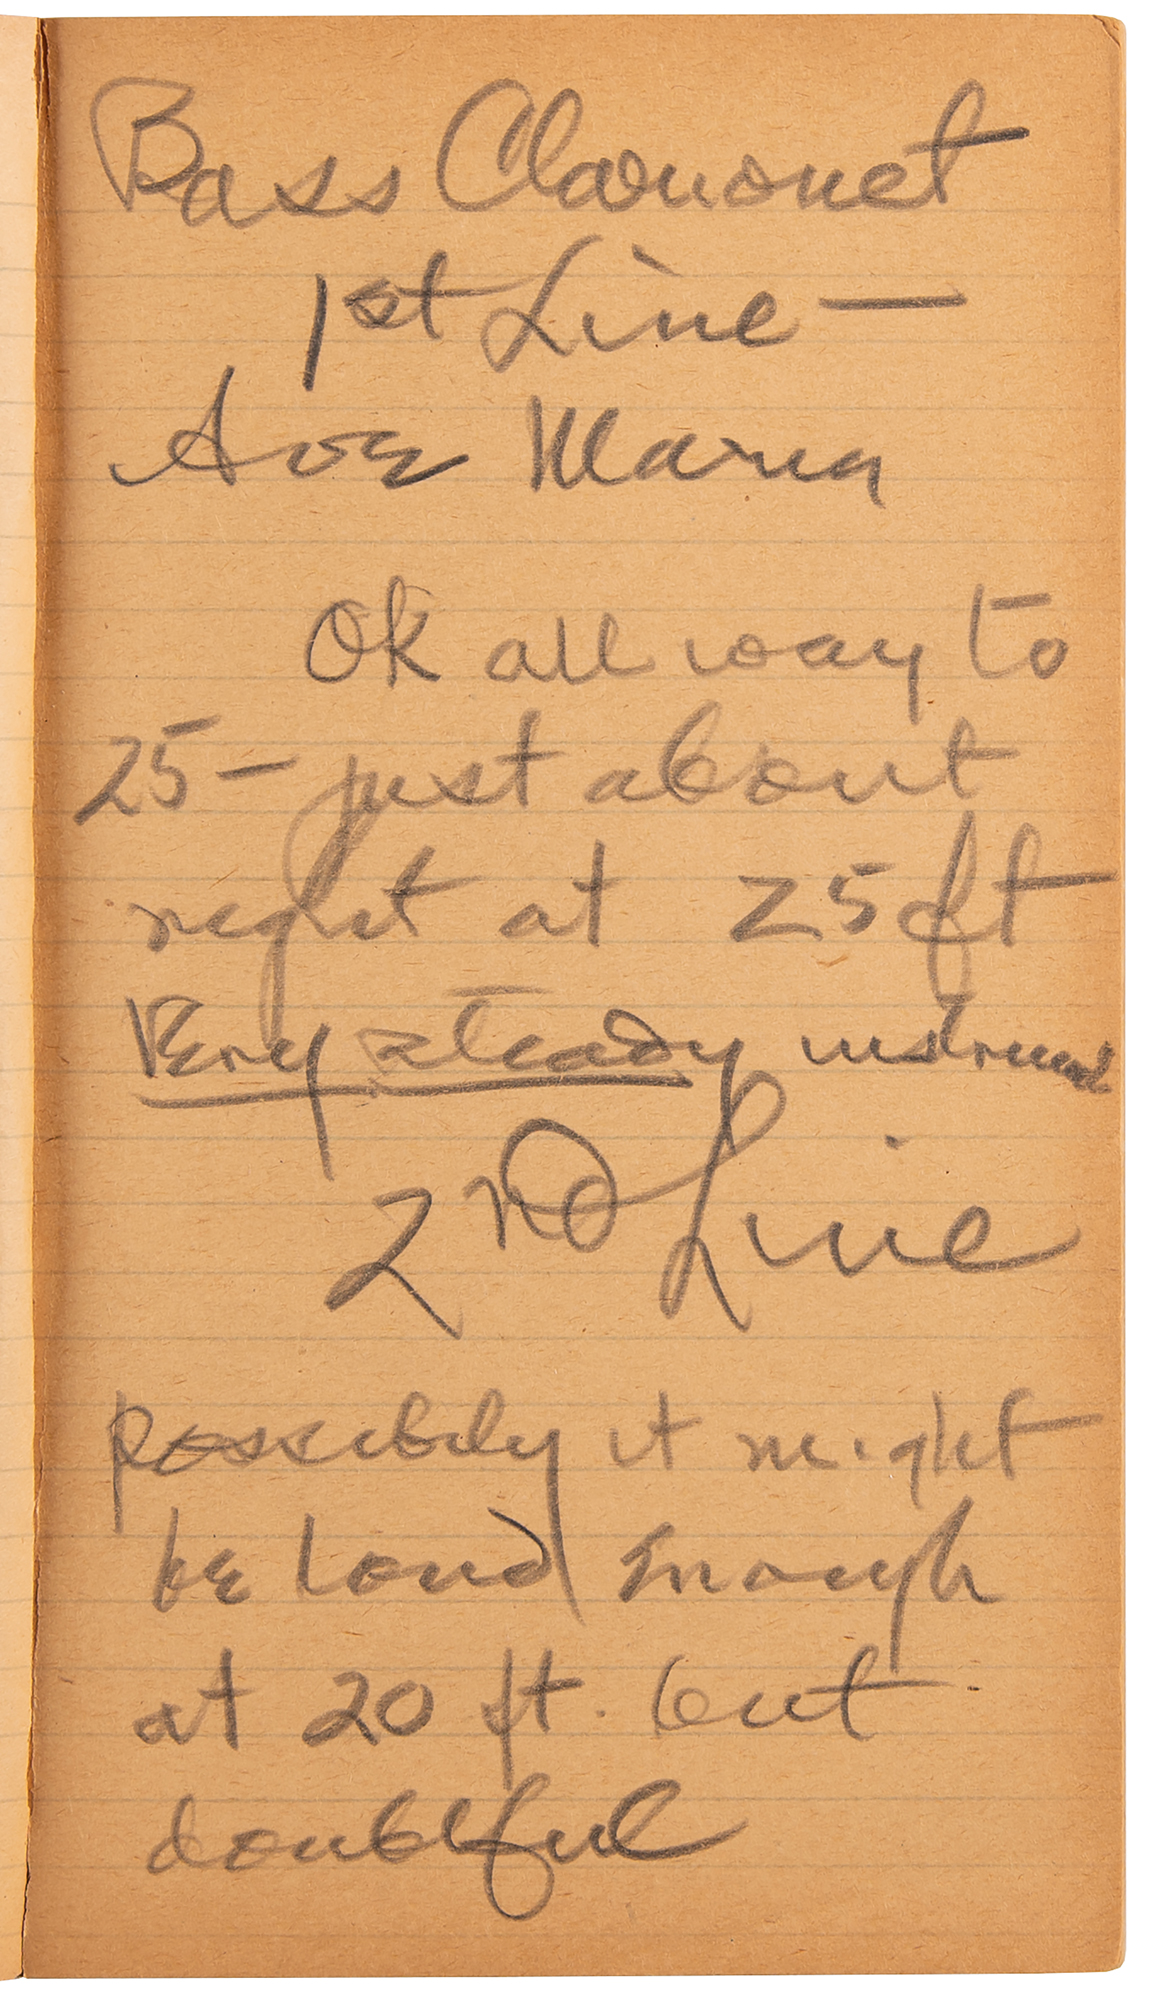 Bass Clarionet
1st Line —
Ave Maria
Ok all way to
25 - just about
right at 25 ft
Very steady instrument
2nd Line
possibly it might
be loud Enough
at 20 ft. but
doubtful